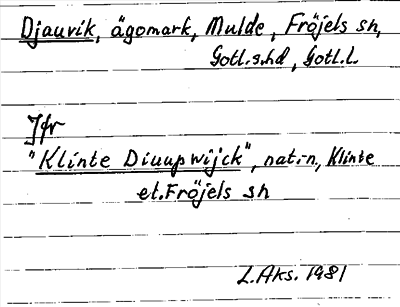 Djauvik, ägomark, Mulde, Fröjels sn,
Gotl.s.hd, Gotl.l.
Jfr
"Klinte Diuupwijck", nat.-n., Klinte
et. Fröjels sn
L.Aks. 1981